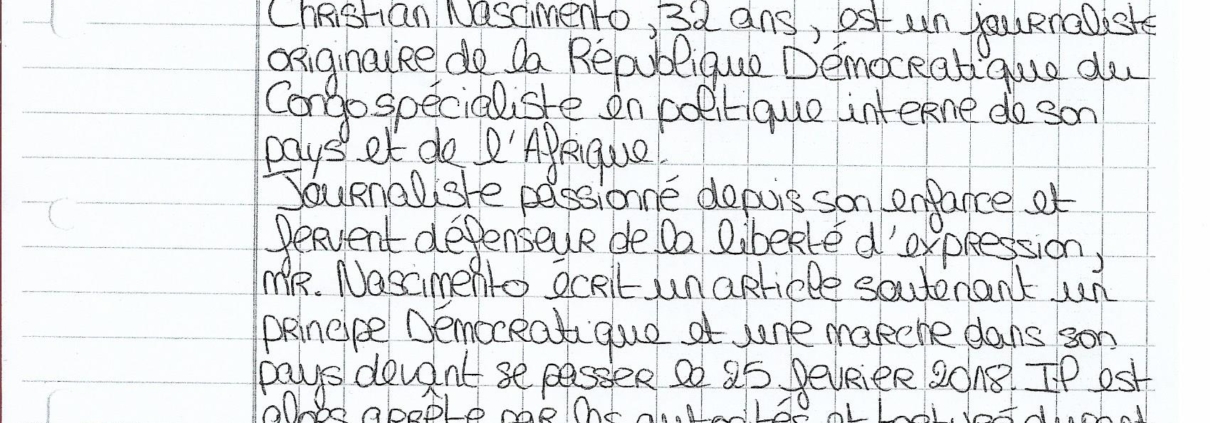 Christian Nascimento, 32 ans, est un journaliste
originaire de la République Démocratique du
Congo spécialiste en politique interne de son
pays et de l'Afrique.
Journaliste passionné depuis son enfance et
fervent défenseur de la liberté d'expression,
mr. Nascimento écrit un article soutenant un
principe Démocratique et une marche dans son
pays devant se passer le 25 fevrier 2018. Il est
alors arrêté par les autorités et torturé durant